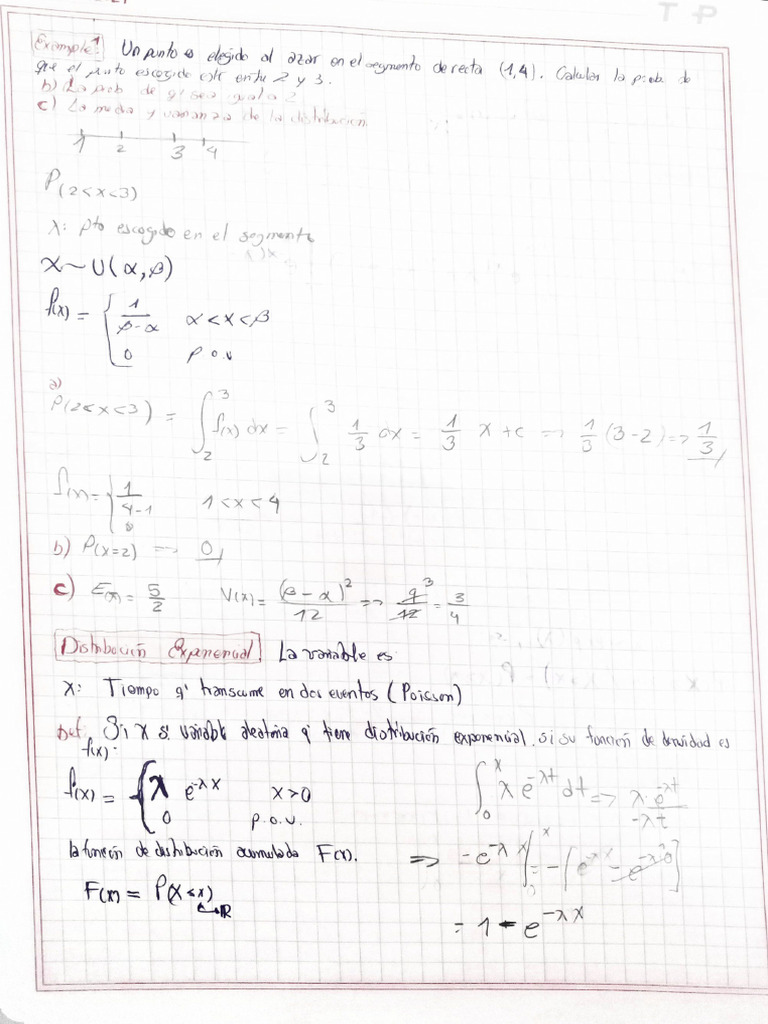 T P
Example 1 Un punto es elegido al azar en el segmento de recta (1,4). Calcular la prob de
que el punto escogido este entre 2 y 3.
b) La prob de q' sea igual a 2
c) La media y varianza de la distribución.
1 2 3 4
P(2<x<3)
x: pto escogido en el segmento
X~U(α,β)
f(x) = { 1/(β-α) α<x<β
0 p.o.v
a)
P(2<x<3) = ∫₂³ f(x) dx = ∫₂³ 1/3 dx = 1/3 x+c => 1/3 (3-2) => 1/3
f(x) = { 1/(4-1) 1<x<4
0
b) P(x=2) => 0
c) E(x) = 5/2 V(x) = (β-α)²/12 => 9/12 = 3/4
Distribución Exponencial. La variable es
x: Tiempo q' transcurre en dos eventos (Poisson)
Def. Si x s. variable aleatoria q' tiene distribución exponencial, si su función de densidad es
f(x).
f(x) = { λ e^(-λx) x>0
0 p.o.v.
∫₀ˣ λ e^(-λt) dt => λ·e^(-λt)/(-λt)
la función de distribución acumulada F(x).
=> -e^(-λx) | = -[e^(-λx) - e^(-λ·0)]
F(x) = P(X<x)
R
= 1-e^(-λx)